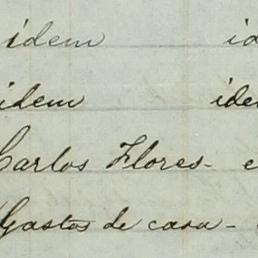 idem id
idem ide
Carlos Flores - e
Gastos de casa -